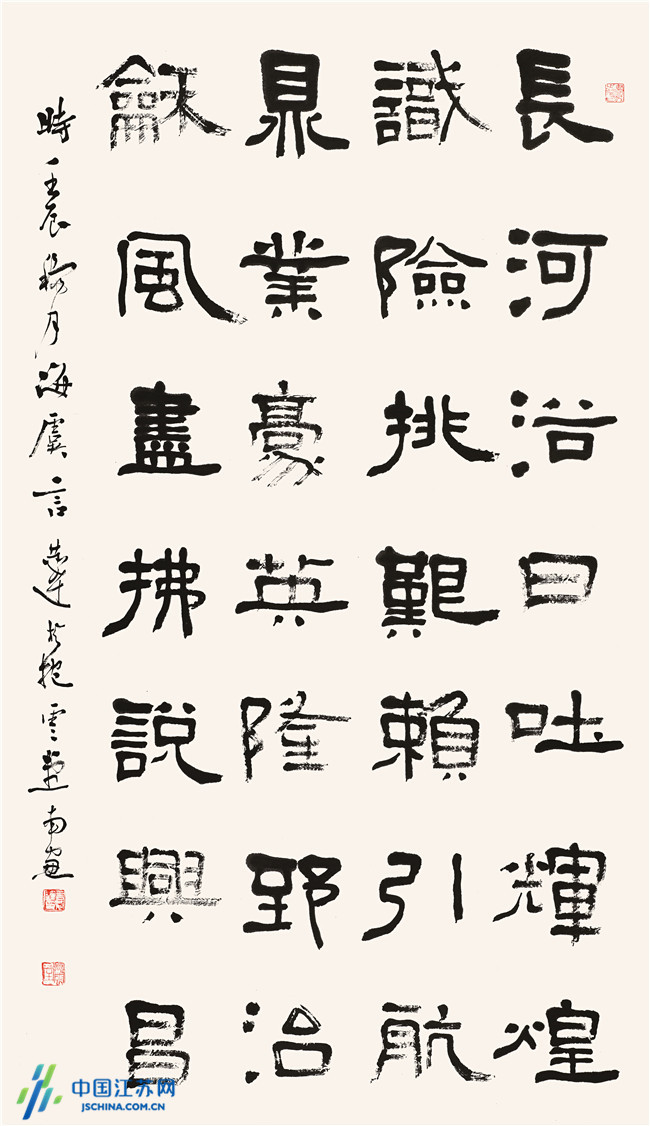 長河浴日吐輝煌
識險挑艱賴引航
鼎業豪英隆郅治
龢風盡拂說興昌
時壬辰穐月海虞言恭達於抱雲堂南窗
中国江苏网
JSCHINA.COM.CN